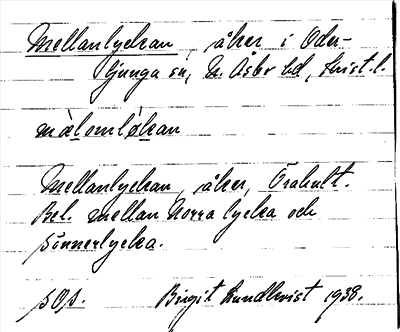 Mellanlyckan, åker i Ode-
ljunga sn, N. Åsbo hd, Krist. l.
mälomløkan
Mellanlyckan, åker, Örahult.
Bel. mellan Norra lycka och
Sönnerlycka.
sOs. Birgit Lundkvist 1938.